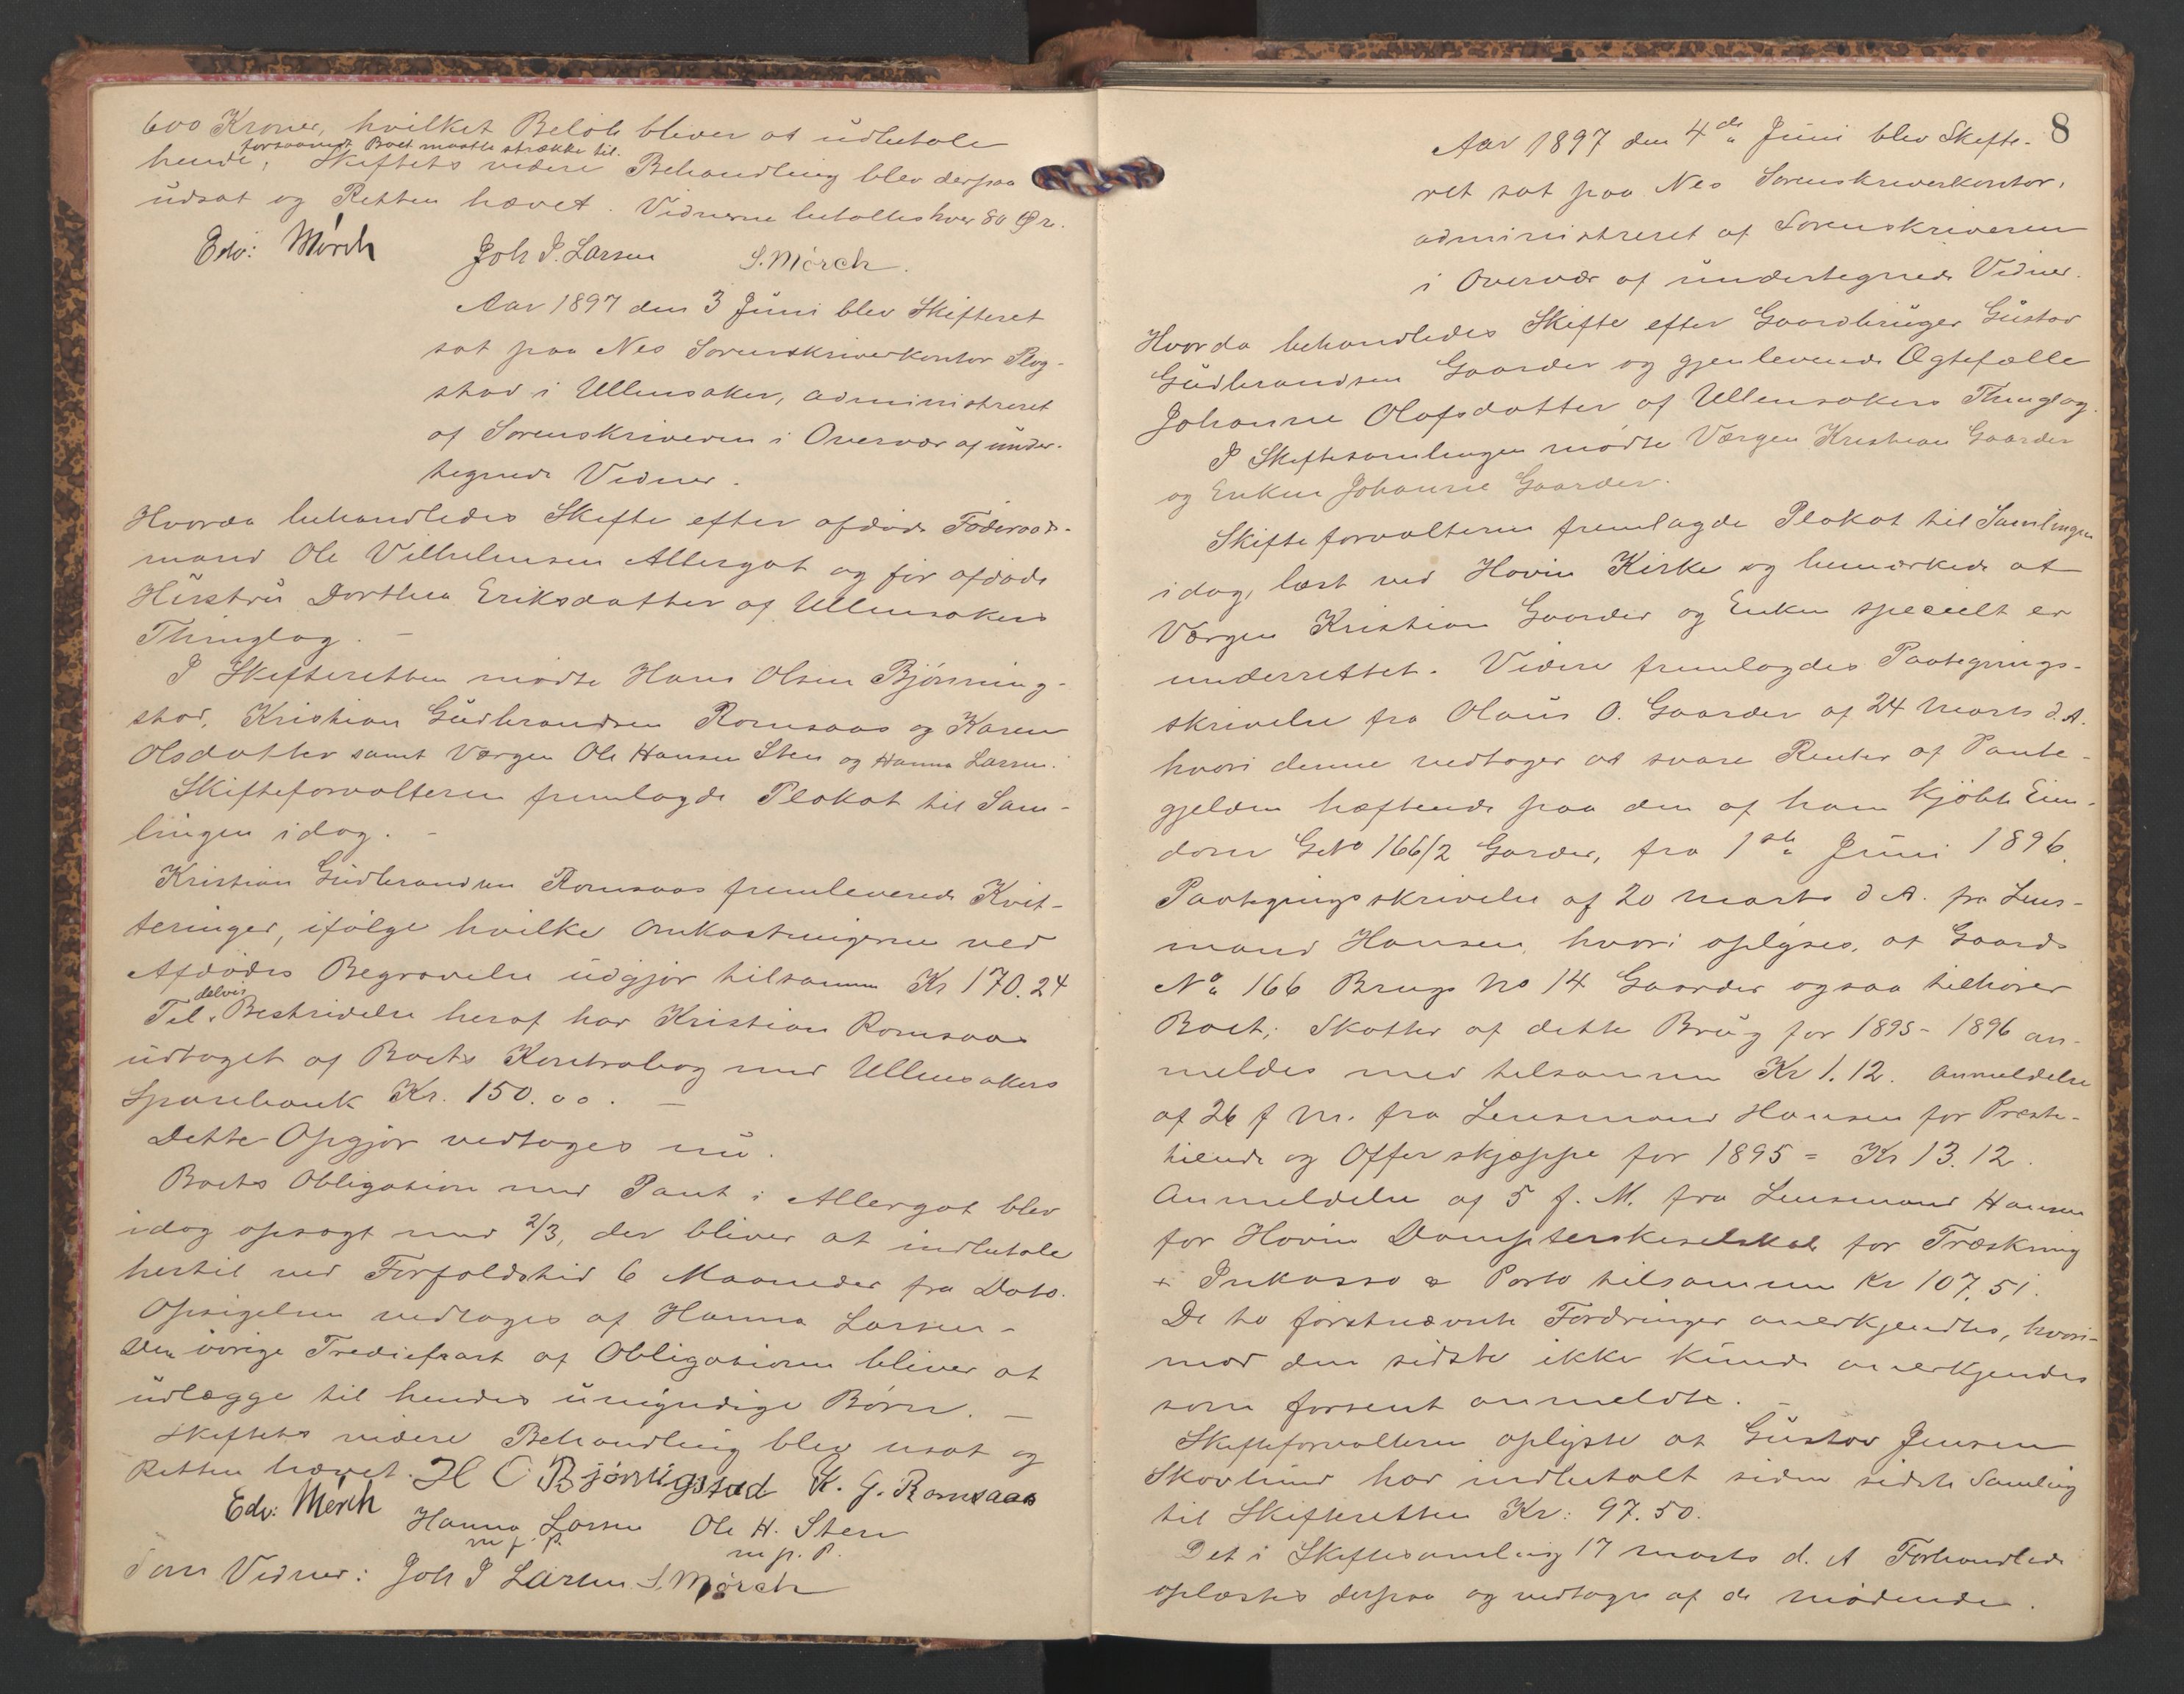 600 Kroner, hvilket Beløb bliver at udbetale
forsaavidt Boet maatte strække til.
hende, Skiftets videre Behandling blev derpaa
udsat og Retten hævet. Vidnerne betaltes hver 80 Øre.
Edv: Mørch Joh J. Larsen S. Mørch.
Aar 1897 den 3 Juni blev Skifteret
sat paa Nes Sorenskriverkontor Plog-
stad i Ullensaker, administreret
af Sorenskriveren i Overvær af under-
tegnede Vidner.
Hvorda behandledes Skifte efter afdøde Føderaads-
mand Ole Vilhelmsen Allergot og før afdøde
Hustru Dorthea Eriksdatter af Ullensakers
Thinglag. —
I Skifteretten mødte Hans Olsen Bjørning-
stad, Kristian Gudbrandsen Romsaas og Karen
Olsdatter samt Værgen Ole Hansen Sten og Hanna Larsen.
Skifteforvalteren fremlagde Plakat til Sam-
lingen idag. —
Kristian Gudbrandsen Romsaas fremleverede Kvit-
teringer, ifølge hvilke Omkostningerne ved
Afdødes Begravelse udgjør tilsammen Kr 170.24
delvis
Til Bestridelse heraf har Kristian Romsaas
udtaget af Boets Kontrabog med Ullensakers
Sparebank Kr. 150.00. —
Dette Opgjør vedtoges nu.
Boets Obligation med Pant i Allergot blev
idag opsagt med 2/3, der bliver at indbetale
hertil ved Forfaldstid 6 Maaneder fra Dato.
Opsigelsen vedtoges af Hanna Larsen –
Den øvrige Trediepart af Obligationen bliver at
udlægge til hendes umyndige Børn. —
Skiftets videre Behandling blev usat og
Retten hævet. H O Bjørnigstad K. G. Romsaas
Edv: Mørch Hanna Larsen Ole H. Sten
m p. P. m p. P.
Som Vidner: Joh J Larsen S. Mørch
8
Aar 1897 den 4de Juni blev Skifte-
ret sat paa Nes Sorenskriverkontor,
administreret af Sorenskriveren
i Overvær af undertegnede Vidner.
Hvorda behandledes Skifte efter Gaardbruger Gustav
Gudbrandsen Gaarder og gjenlevende Ægtefælle
Johanne Olafsdatter af Ullensakers Thinglag.
I Skiftesamlingen mødte Værgen Kristian Gaarder
og Enken Johanne Gaarder.
Skifteforvalteren fremlagde Plakat til Samlingen
idag, læst ved Hovin Kirke og bemærkede at
Værgen Kristian Gaarder og Enken specielt er
underrettet. Videre fremlagdes Paategnings-
skrivelse fra Olaus O. Gaarder af 24 Marts d. A.
hvori denne vedtager at svare Renter af Pante-
gjelden hæftende paa den af ham kjøbte Eien-
dom GNo 166/2 Garder, fra 1ste Juni 1896.
Paategningsskrivelse af 20 Marts d A. fra Lens-
mand Hansen, hvori oplyses, at Gaards
No 166 Brugs No 14 Gaarder ogsaa tilhører
Boet; Skatter af dette Brug for 1895 – 1896 an-
meldes med tilsammen Kr 1.12. Anmeldelse
af 26 f M. fra Lensmand Hansen for Præste-
tiende og Offerskjæppe for 1895 = Kr 13.12.
Anmeldelse af 5 f. M. fra Lensmand Hansen
for Hovin Dampterskeselskab for Træskning
+ Inkasso & Porto tilsammen Kr 107.51.
De to førstnævnte Fordringer anerkjendtes, hvori-
mod den sidste ikke kunde anerkjendes
som forsent anmeldte. —
Skifteforvalteren oplyste at Gustav Jensen
Skovlund har indbetalt siden sidste Samling
til Skifteretten Kr: 97.50.
Det i Skiftesamling 17 Marts d. A Forhandlede
oplæstes derpaa og vedtoges af de mødende.